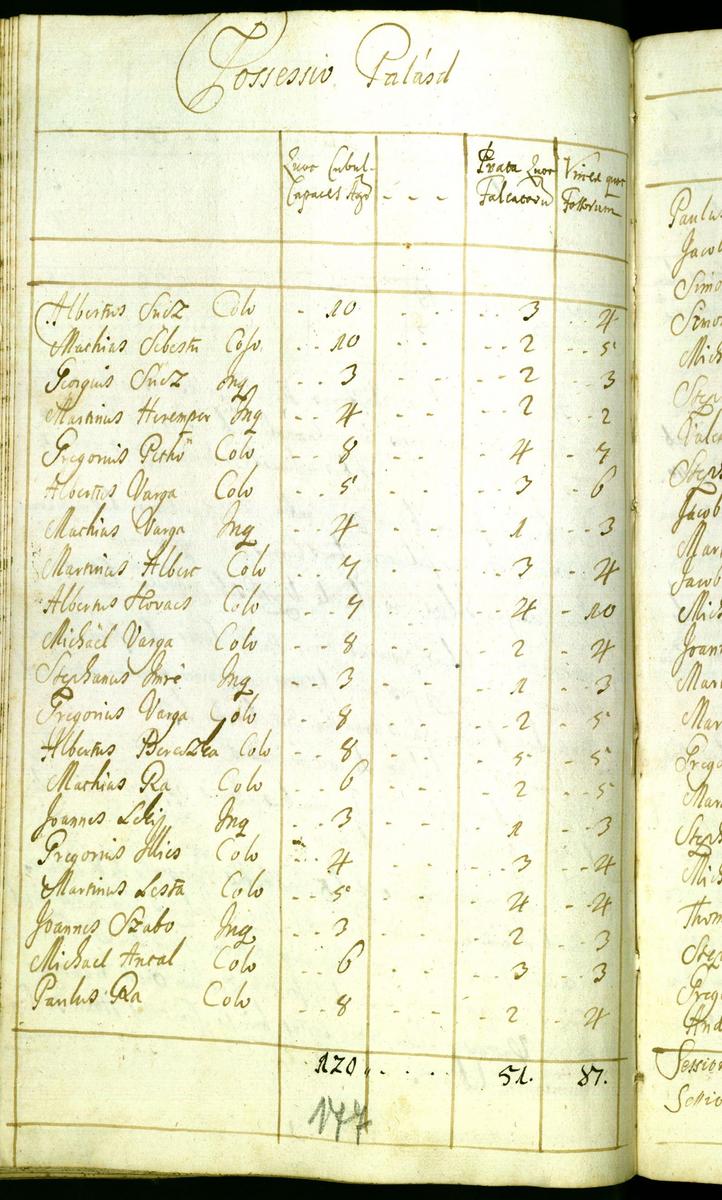 Possessio Palásd
Quot Cubul. Capaces Agri - - - Prata Quot Falcatorū Vinea quot Fossorum
Albertus Süsz Colo - 10 - - - 3 - - 4
Mathias Sebestn Colo - - 10 - - - - 2 - - 5
Georgius Süsz Inq - - 3 - - - - 2 - - 3
Martinus Heremper Inq - - 4 - - - - 2 - - 2
Gregorius Pethö Colo - - 8 - - - - 4 - - 7
Albertus Varga Colo - - 5 - - - - 3 - 6
Mathias Varga Inq - - 4 - - - - 1 - - 3
Martinus Albert Colo - - 7 - - - - 3 - - 4
Albertus Kovacs Colo - - 7 - - - - 4 - 10
Michaël Varga Colo - - 8 - - - - 2 - 4
Stephanus Imrè Inq - - 3 - - - - 1 - - 3
Gregorius Varga Colo - - 8 - - - - 2 - - 5
Albertus Bereszka Colo - - 8 - - - - 5 - - 5
Mathias Ra Colo - - 6 - - - - 2 - - 5
Joannes Inq - - 3 - - - - 1 - - 3
Gregorius Illies Colo - - 4 - - - - 3 - - 4
Martinus Lesta Colo - - 5 - - - - 4 - - 4
Joannes Szabo Inq - - 3 - - - - 2 - - 3
Michael Antal Colo - - 6 - - - - 3 - - 3
Paulus Ra Colo - - 8 - - - - 2 - - 4
120 - - - - 51. 87.
177
Paulu
Jaco
Simo
Simo
Mich
Step
Vale
Steph
Jacob
Mar
Jacob
Mich
Joan
Mar
Mar
Grego
Mar
Steph
Mich
Thom
Step
Greg
And
Session
Sessio